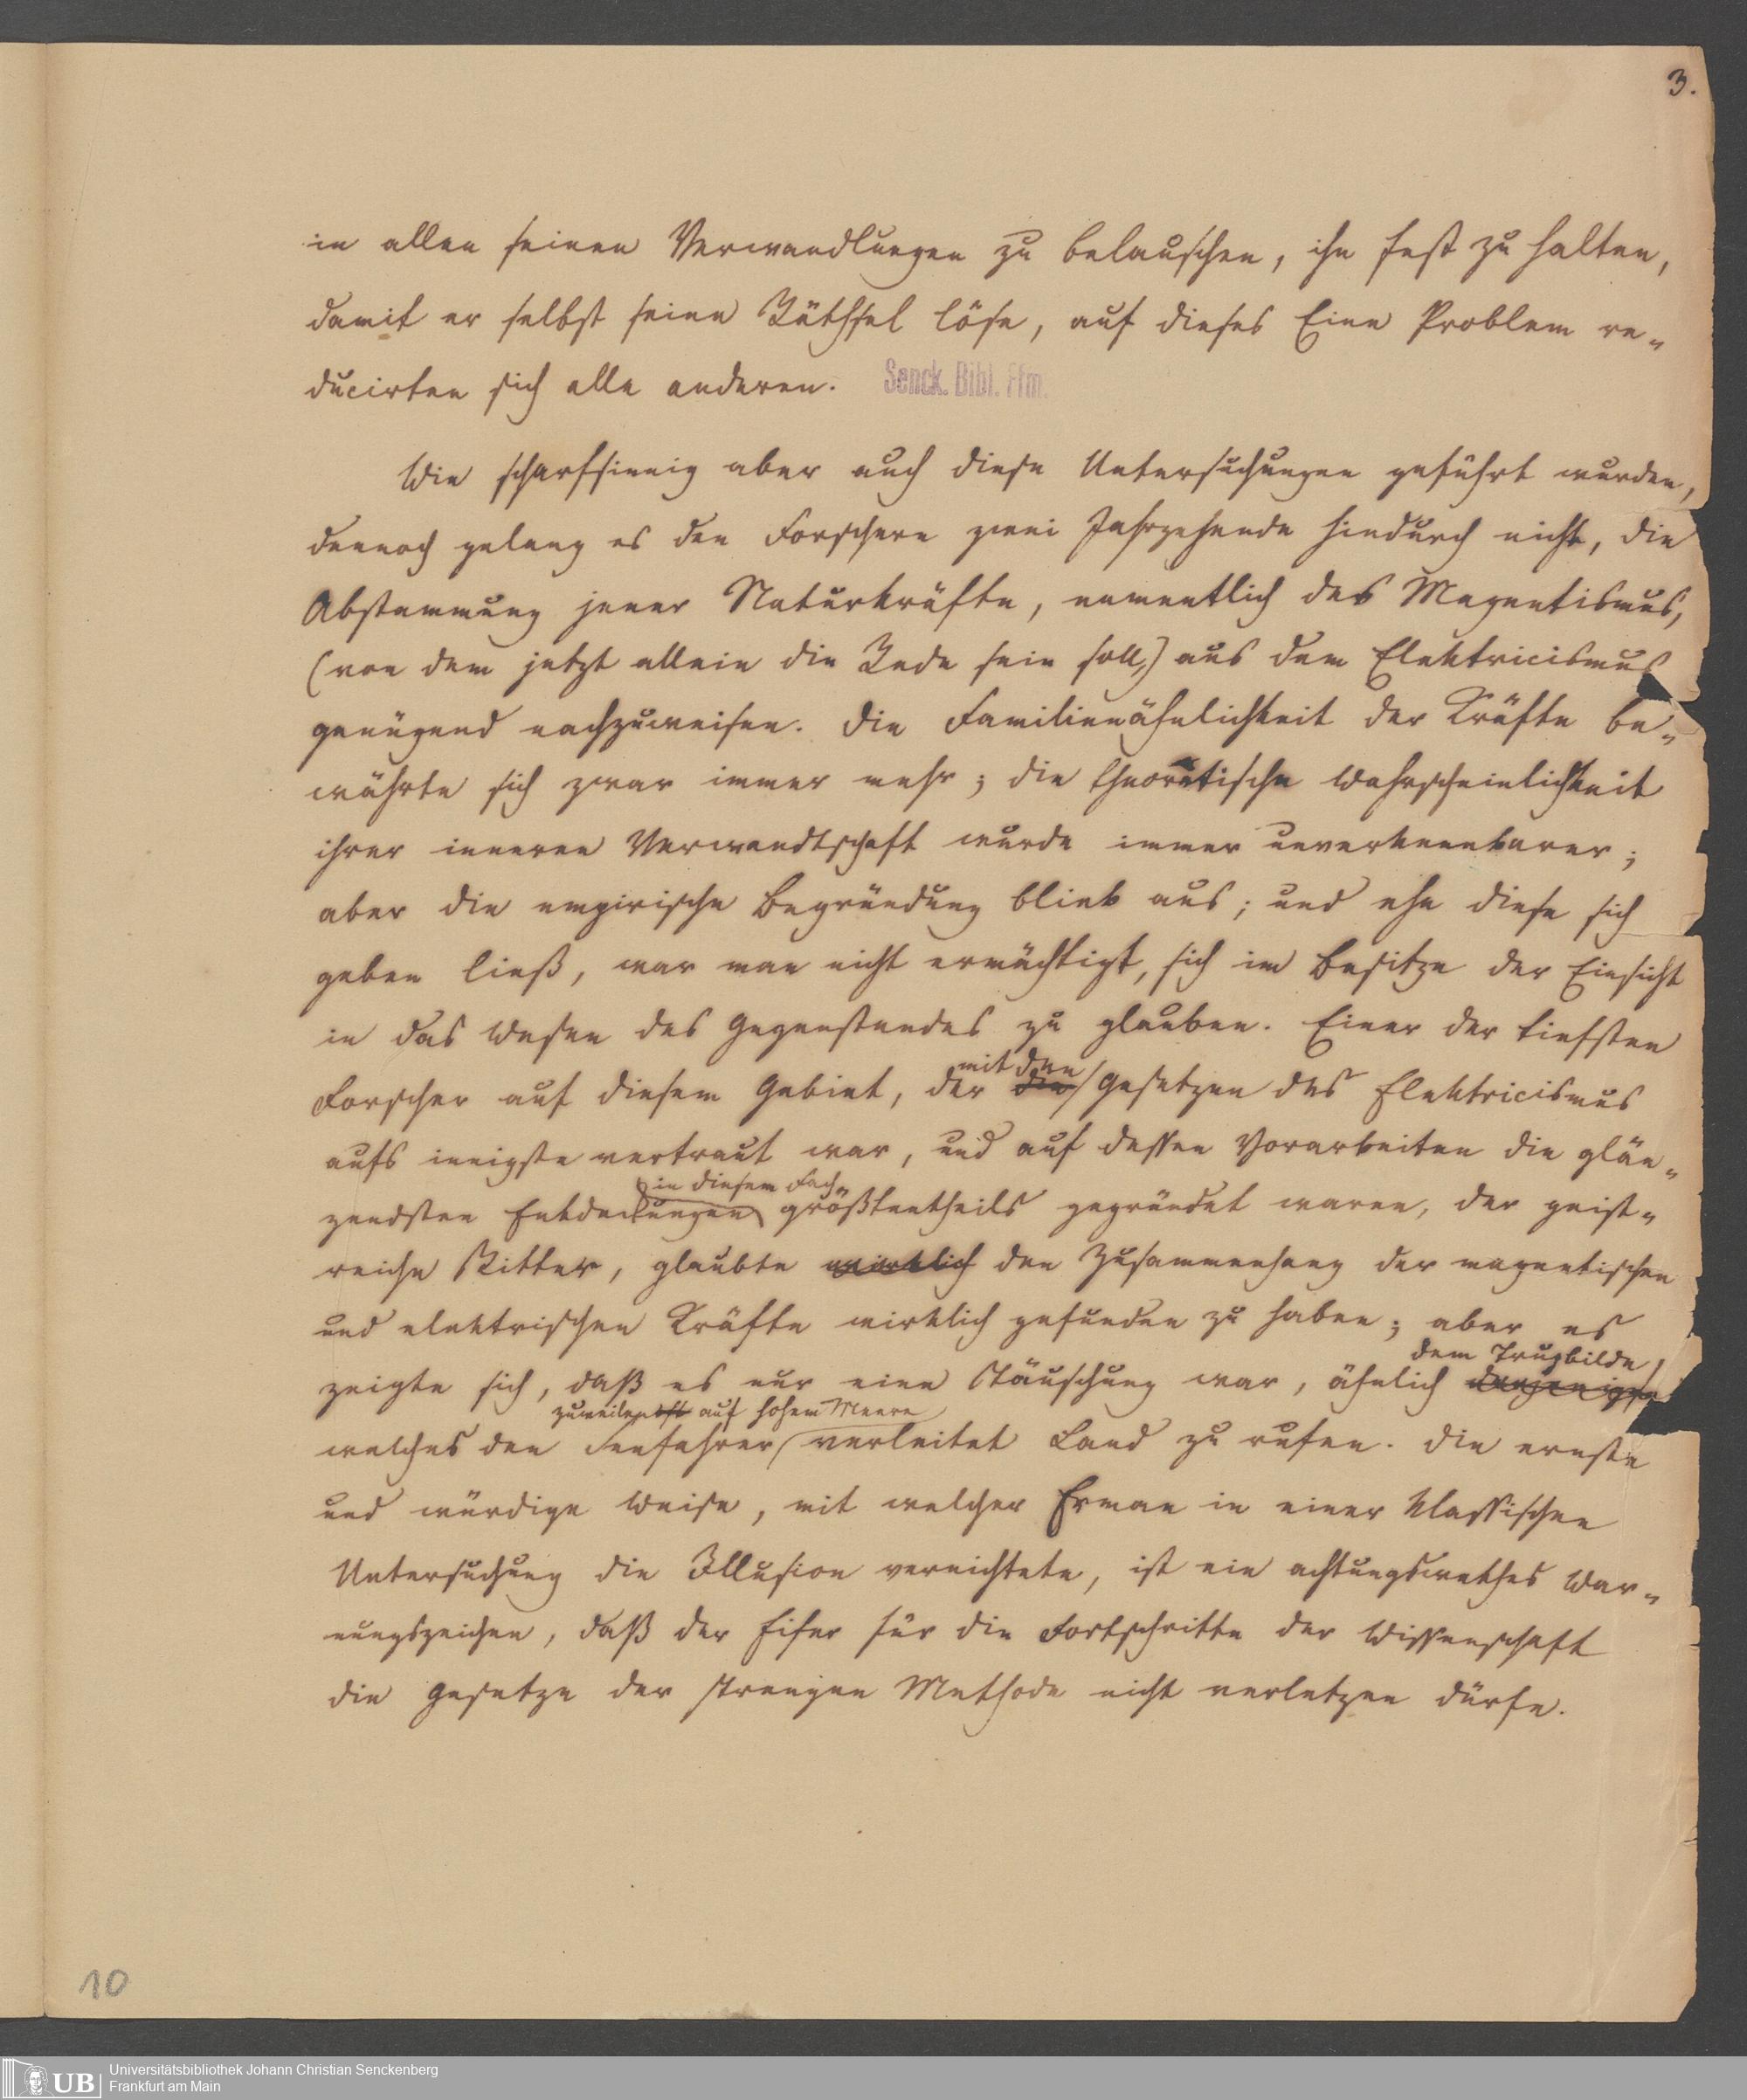 3.
in allen seinen Verwandlungen zu belauschen, ihn fest zu halten,
damit er selbst seine Räthsel löse, auf dieses Eine Problem re-
ducirten sich alle anderen. Senck. Bibl. Ffm.
Wie scharfsinnig aber auch diese Untersuchungen geführt wurden,
dennoch gelang es den Forschern zwei Jahrzehende hindurch nicht, die
Abstammung jener Naturkräfte, namentlich des Magnetismus,
(von dem jetzt allein die Rede sein soll,) aus dem Elektricismus
genügend nachzuweisen. Die Familienähnlichkeit der Kräfte be-
währte sich zwar immer mehr; die theoretische Wahrscheinlichkeit
ihrer inneren Verwandtschaft wurde immer unverkennbarer;
aber die empirische Begründung blieb aus; und ehe diese sich
geben ließ, war man nicht ermächtigt, sich im Besitze der Einsicht
in das Wesen des Gegenstandes zu glauben. Einer der tiefsten
mit den
Forscher auf diesem Gebiet, der die Gesetzen des Elektricismus
aufs innigste vertraut war, und auf dessen Vorarbeiten die glän-
in diesem Fach
zendsten Entdeckungen größtentheils gegründet waren, der geist-
reiche Ritter, glaubte wirklich den Zusammenhang der magnetischen
und elektrischen Kräfte wirklich gefunden zu haben; aber es
dem Trugbilde
zeigte sich, daß es nur eine Täuschung war, ähnlich derjenigen
zuweilen oft auf hohem Meere
welches den Seefahrer verleitet Land zu rufen. Die ernste
und würdige Weise, mit welcher Erman in einer klassischen
Untersuchung die Illusion vernichtete, ist ein achtungswerthes War-
nungszeichen, daß der Eifer für die Fortschritte der Wissenschaft
die Gesetze der strengen Methode nicht verletzen dürfe.
10
UB Universitätsbibliothek Johann Christian Senckenberg
Frankfurt am Main